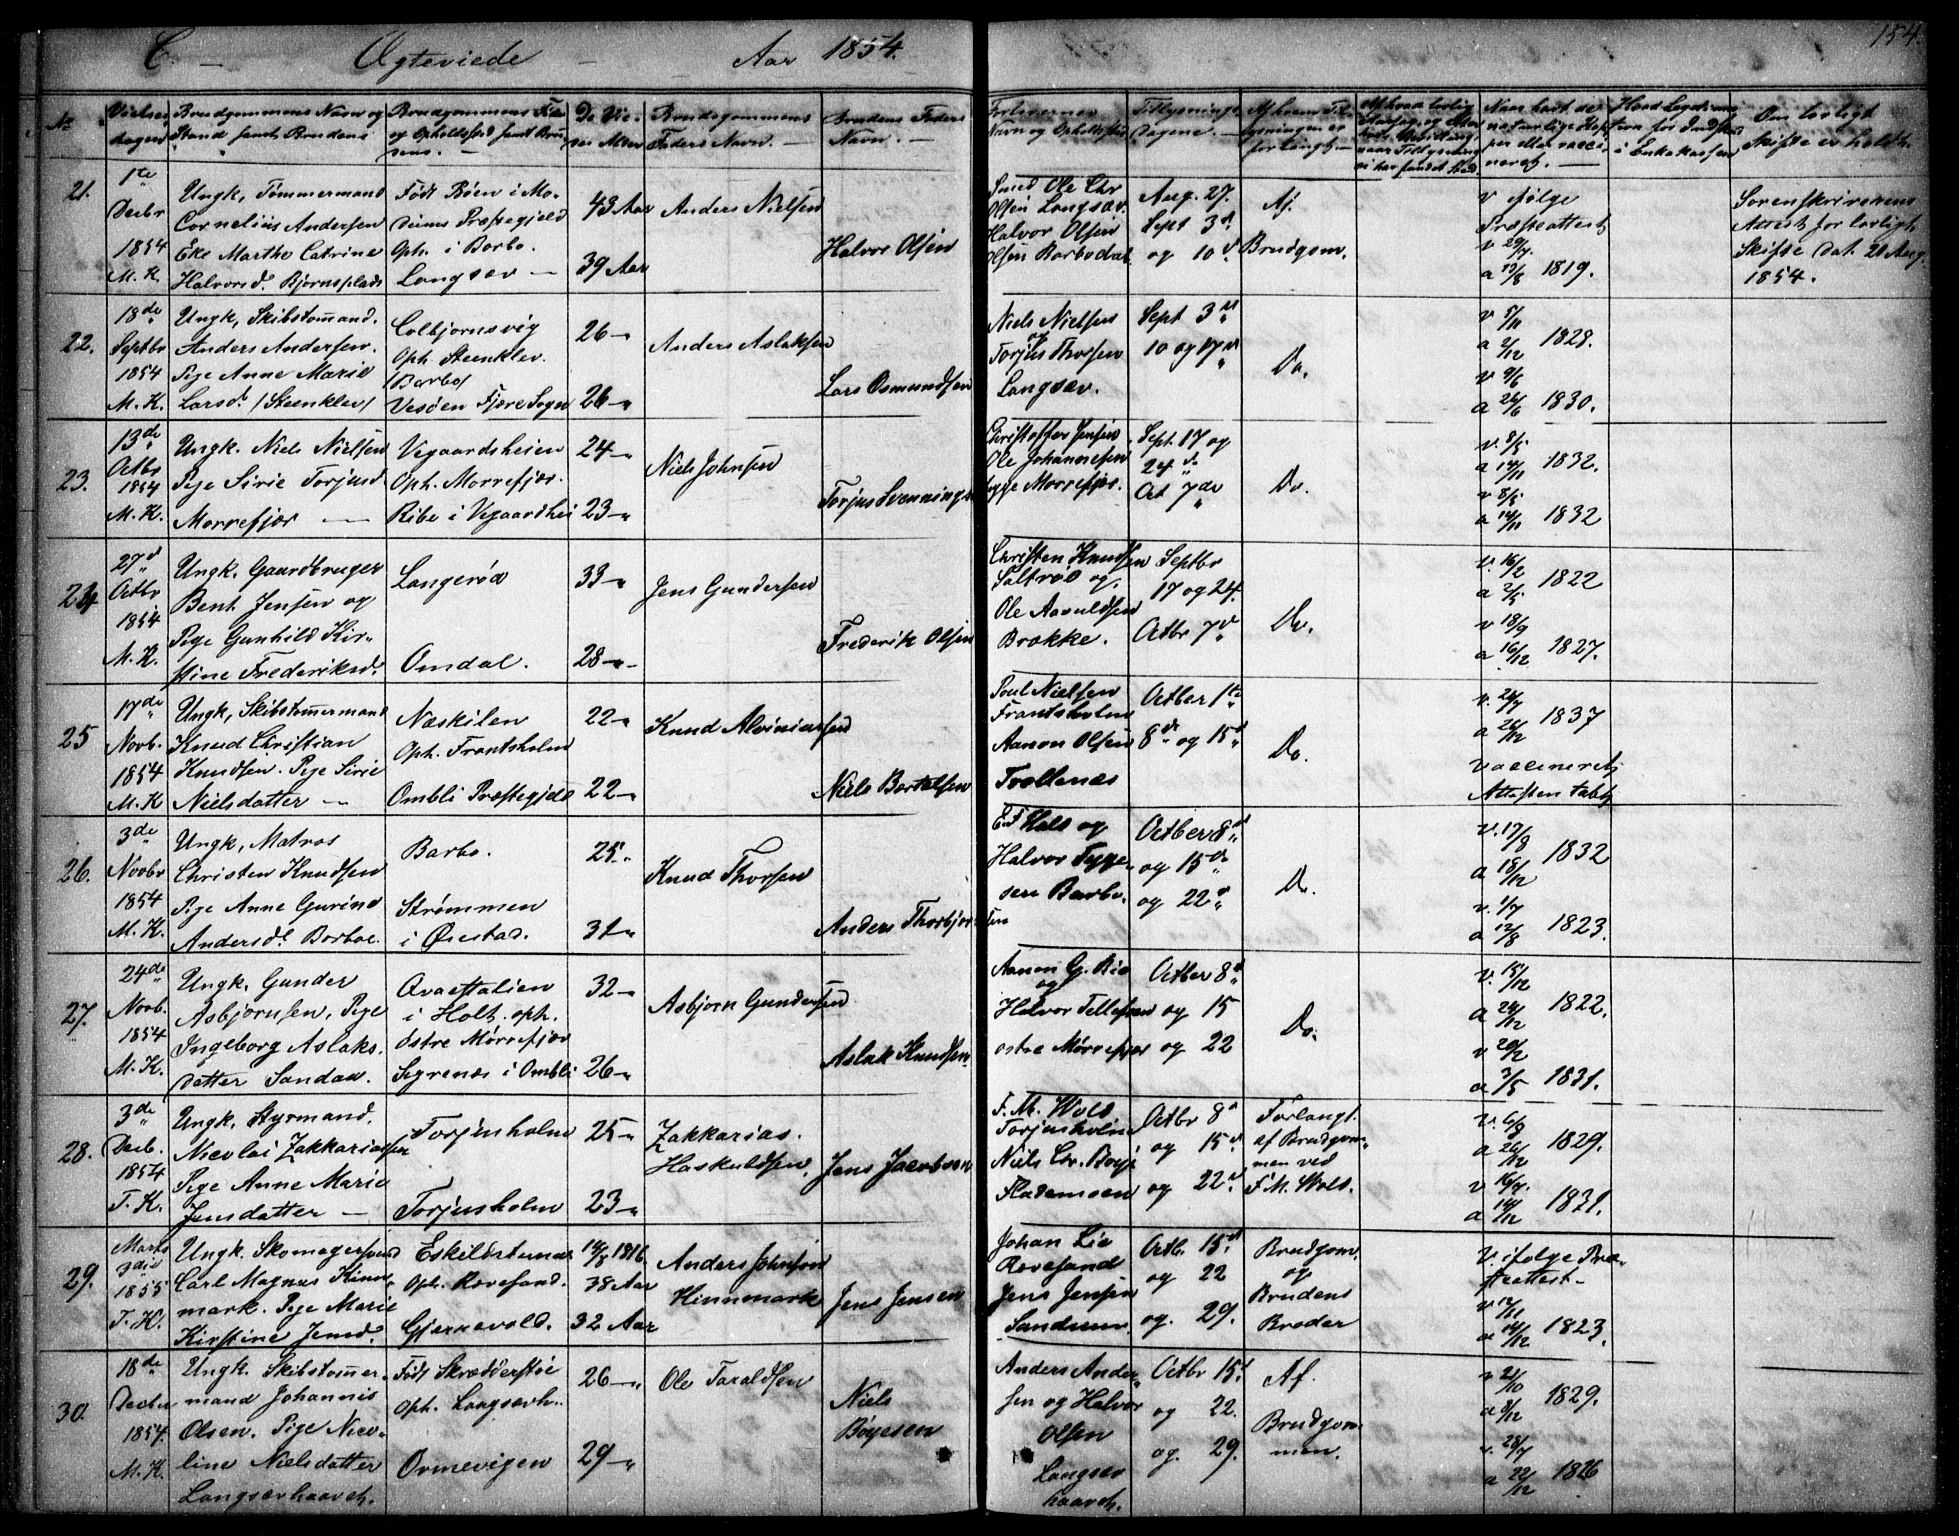 C. — Ægteviede — Aar 1854.
154.
No
Vielses dagen
Brudgommens Navn og Stand samt Brudens
Brudgommens Føde og Opholdssted samt Brudens. —
De Vie-
des Alder
Brudgommens
Faders Navn. —
Brudens Faders
Navn. —
Forlovernes
Navn og Opholdssted
Tillysnings
Dagene. —
Af hvem Til-
lysningen er
forlangt. —
Naar havt de
naturlige Kop-
per eller vacci-
neret. —
Om lovligt
Skifte er holdt.
21.
1te
Decbr
1854
M. K.
Ungk, Tømmermand
Cornelius Andersen
Eke Marthe Catrine
Halvorsd. Bjørnsplads
Født Bøen i Mo-
Præstegjeld
Oph. i Barbo.
Langsæv —
43 Aar
39 Aar
Anders Nielsen
Halvor Olsen
Smed Ole Chr
Olsen Langsæv.
Halvor Olsen
Olsen Barbodal.
Aug. 27.
Sept 3d
og 10d
Af.
Brudgom.
v ifølge
Præsteattest
v 29/7
a 13/8 1819.
Sorenskriverens
Attest for lovligt
Skifte Dat. 21 Aug.
1854.
22.
18de
Septbr
1854
M. K.
Ungk, Skibstømand.
Anders Andersen.
Pige Anne Marie
Larsd. /Steenklev/
Colbjørnsvig
Oph. Steenklev.
/Barbo/
Vesøen Fjære Sogn
26 —
26 —
Anders Aslaksen
Lars Osmundsen
Niels Nielsen
Torjus Thorsen
Langsæv.
Sept 3d
10 og 17d
Do.
v 5/11
a 2/12 1828.
v 9/6
a 26/6 1830.
23.
13de
Octbr
1854
M. K.
Ungk. Niels Nielsen
Pige Sirie Torjusd
Morrefjær —
Vegaardsheien
Oph. Morrefjær.
Ribe i Vegaardshei
24 —
23 —
Niels Johnsen
Torjus Svennings
Christoffer Jensen
Ole Johannesen
begge Morrefjær.
Sept. 17 og
24d
Oct 7de
Do.
v. 8/5
a 14/11 1832.
v 8/5
a 14/11 1832
24
27d
Octbr
1854
M. K.
Ungk. Gaardbruger
Bent Jensen og
Pige Gunhild Kir-
stine Frederiksd.
Langerød
Omdal.
33 —
28 —
Jens Gundersen
Frederik Olsen
Christen Knudsen
Saltrød og
Ole Aanuldsen
Brække.
Septbr
17 og 24.
Octbr 7d
Do.
v. 16/2
a 2/5 1822
v 18/9
a 16/12 1827.
25
17de
Novb.
1854
M. K
Ungk, Skibstømermand
Knud Christian
Knudsen. Pige Sirie
Nielsdatter —
Næskilen
Oph. Frantsholm
Ombli Præstegjeld
22 —
22 —
Knud Alviniussen
Niels Bertelsen
Poul Nielsen
Frantsholm
Aanon Olsen
Trollenæs
Octber 1te
8d og 15d
Do.
v. 24/7
a 26/12 1837
vaccineret
Attesten tabt
26.
3de
Novbr
1854
M. K.
Ungk, Matros
Christen Knudsen
Pige Anne Gurine
Andersd. Barboe.
Barbo.
Strømmen
i Øiestad.
25.
31 —
Knud Thorsen
Anders Thorbjørnsen
Hals og
Halvor Tygge-
sen Barbo.
Octber 8d
og 15de
og 22d
Do.
v. 17/8
a 18/12 1832
v. 1/7
a 12/8 1823.
27.
24de
Novb.
1854
M. K.
Ungk, Gunder
Asbjørnsen, Pige
Ingeborg Aslaks-
datter Sandaa.
i Holt. oph.
østre Mørrefjær
Segrenæs i Ombli
32 —
26 —
Asbjørn Gundersen
Aslak Knudsen
Aanon G. Bie
og
Halvor Tellefsen
østre Mørrefjær
Octber 8d
og 15
og 22
Do.
v. 15/12
a 24/12 1822.
v 20/2
a 3/5 1831.
28.
3de
Decb.
1854
T. K.
Ungk. Styrmand.
Nicolai Zakkariassen
Pige Anne Marie
Jensdatter —
Torjusholm
Torjusholm
25 —
23 —
Zakkarias
Haskuldsen.
Jens Jacobsen
F. M. Wold
Torjusholm
Niels Chr. Boye
Flademoen
Octbr 8d
og 15d
og 22d.
Forlangt
af Brudgom-
men ved
F. M. Wold.
v. 6/9
a 26/12 1829.
v 16/4
a 14/12 1831.
29.
Marts
3die
1855
T. K.
Ungk. Skomagersvend
Carl Magnus Hinn-
mark. Pige Marie
Kirstine Jensd.
Eskilstuna
Oph. Rævesand.
Gjernevold.
14/8 1816.
38 Aar
32 Aar
Anders Johnson
Hinnmark
Jens Jensen
Johan Lie
Rævesand
Jens Jensen
Sandum
Octb. 15d
og 22
og. 29.
Brudgom.
og
Brudens
Broder
v. ifølge Præ-
steattest —
v 12/11
a 14/12 1823.
30.
18de
Decber
1854.
M. K.
Ungk. Skibstømer-
mand Johannis
Olsen. Pige Nico-
line Nielsdatter
Langsævhaavet.
Født Skrædderstøe
Oph. Langsævh.
Ormevigen
26 —
29 —
Ole Taraldsen
Niels
Bøyesen
Anders Ander-
sen og Halvor
Olsen
Langsæv
haavet.
Octbr 15d
og 22.
og. 29.
Af.
Brudgom-
men.
v 21/10
a 8/12 1829.
v. 28/7
a 22/12 1826